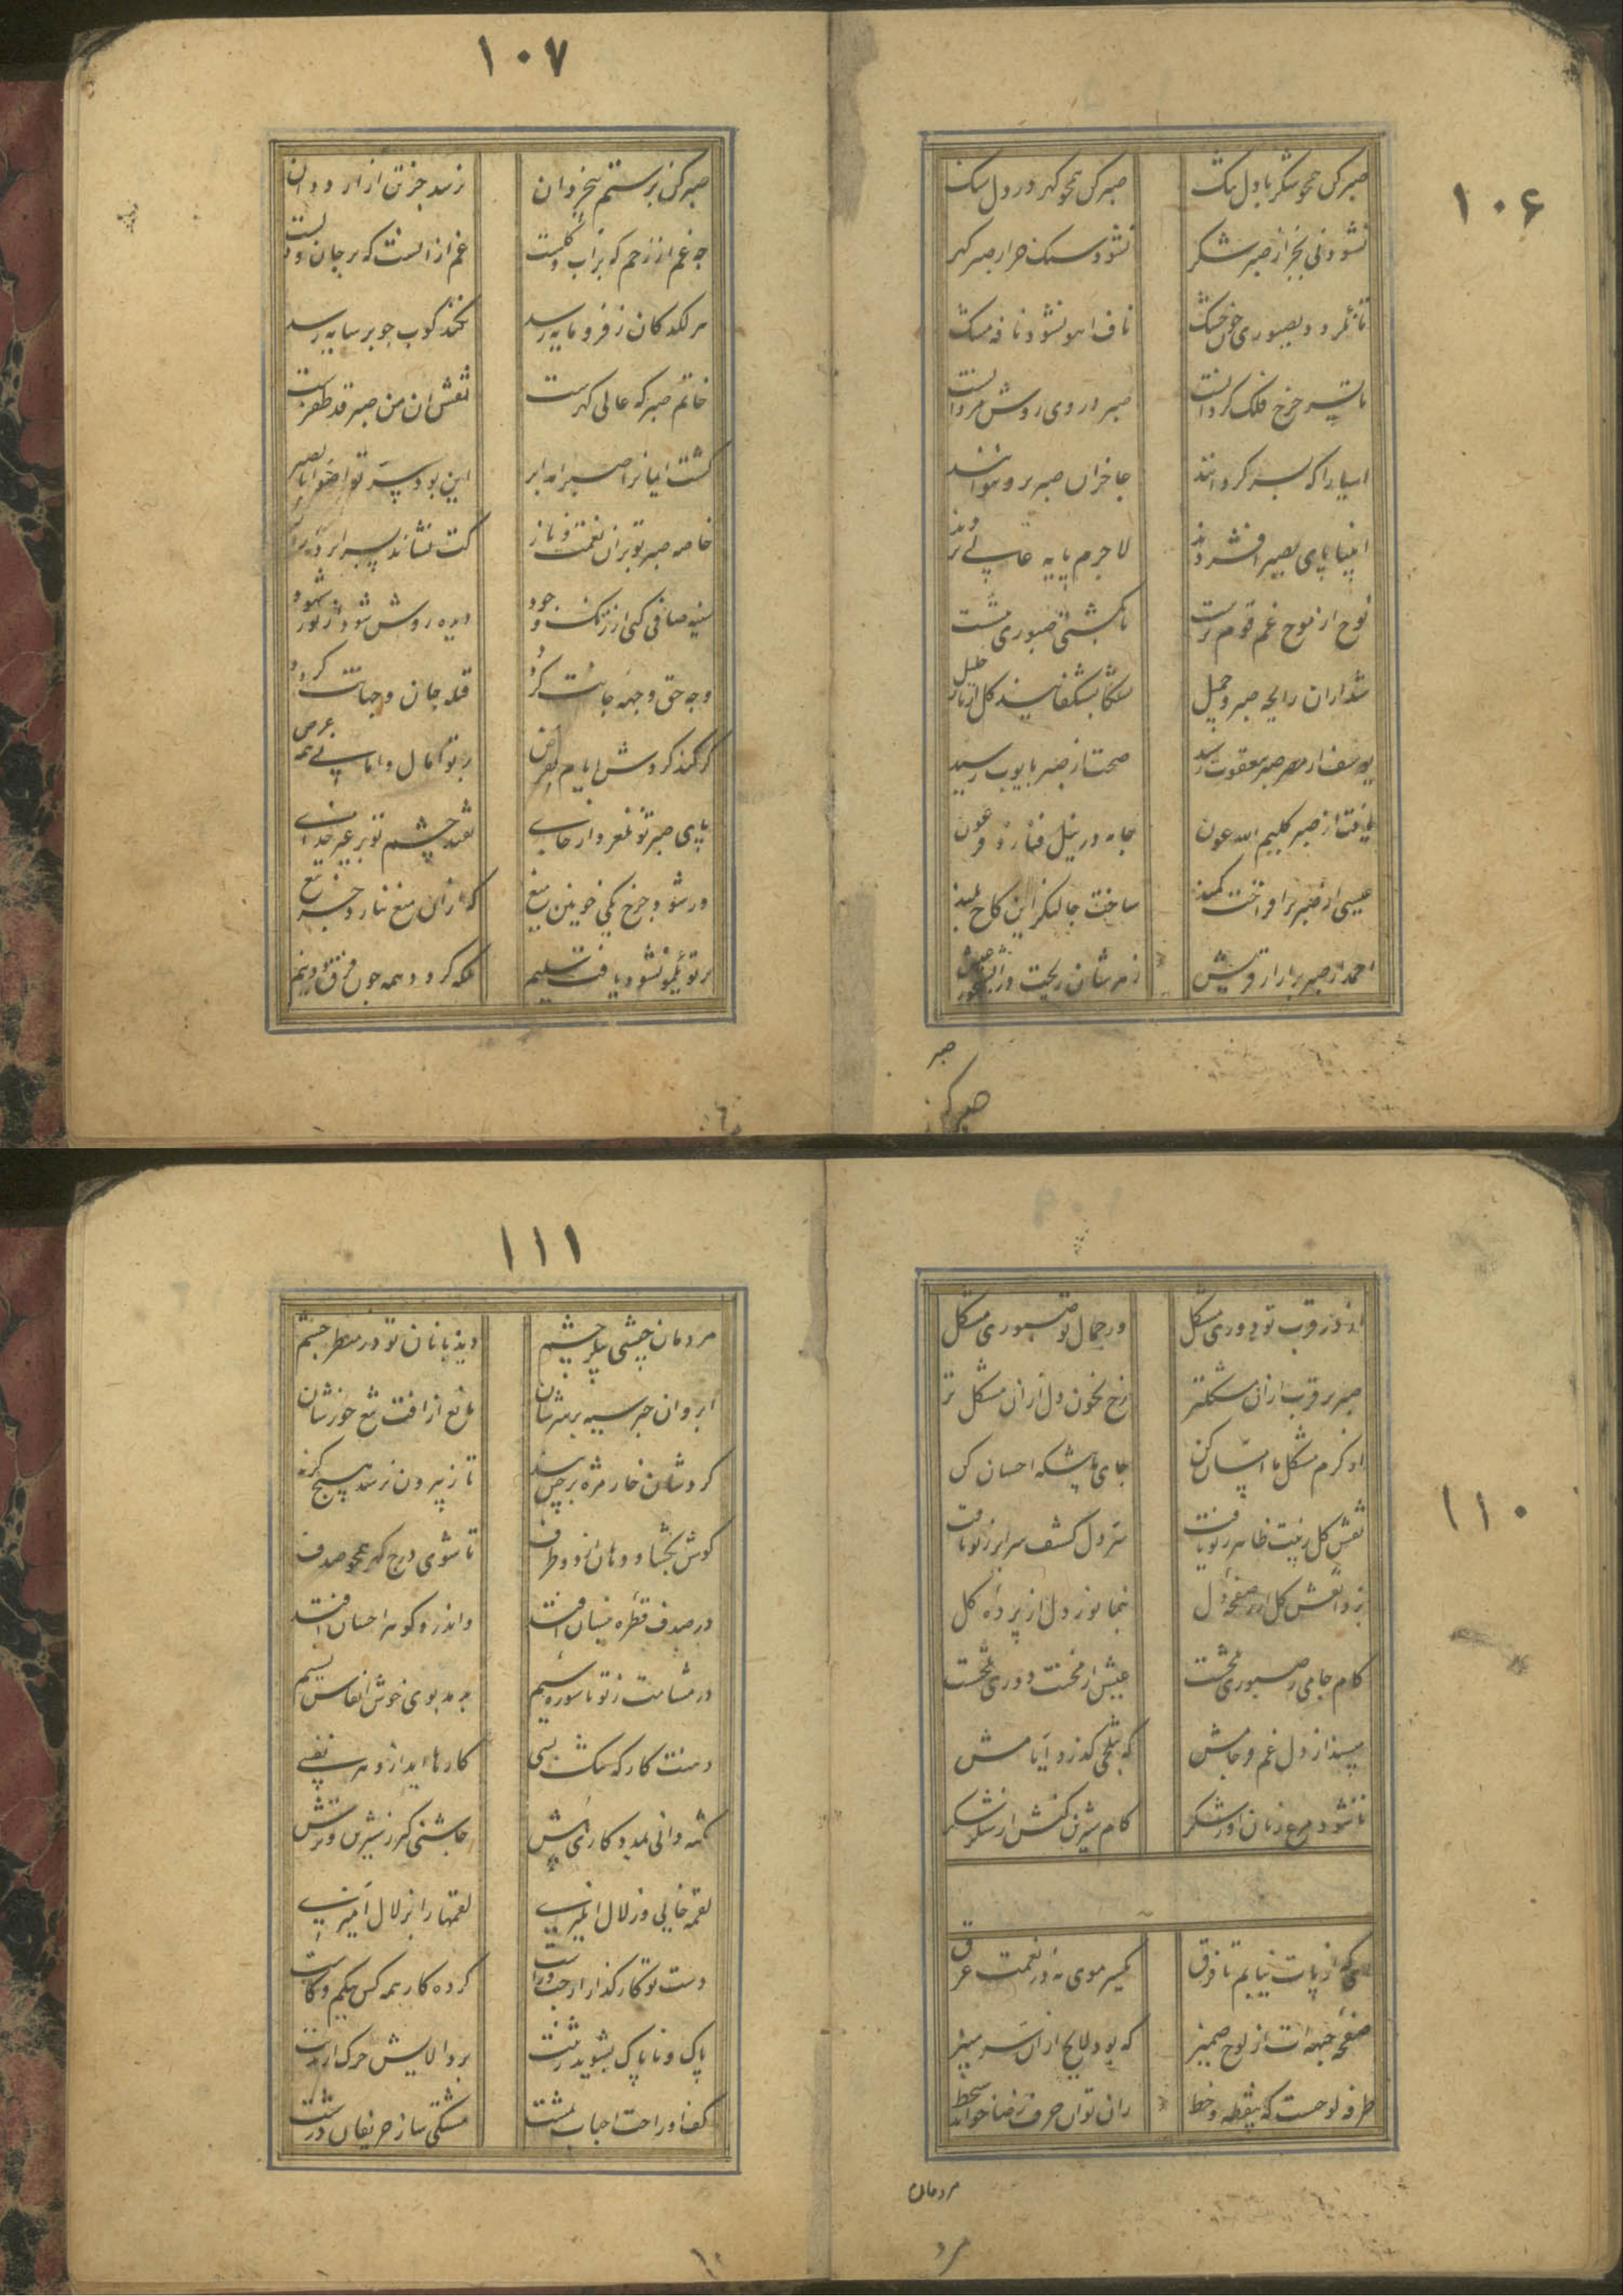 ۱۰۶
صبر کن همچو شکر با دل تنگ
صبر کن همچو گهر در دل سنگ
نشود نی بجز از صبر شکر
نشود سنگ جز از صبر گهر
خون خشک
ناف آهو نشود نافه مشک
چرخ فلک گردانست
صبر در وی روش مردانست
آسیا را که بسر گردانند
جا جز آن صبر برو نتوانند
انبیا پای بصبر افشردند
لاجرم پایه عالی بردند
نوح از موج غم قوم نرست
تا بکشتی صبوری ننشست
صبر جمیل
گل از نار خلیل
یوسف از مصر صبر بیعقوب رسید
صحت از صبر بایوب رسید
یافت از صبر کلیم الله عون
جامه در نیل فنا زد فرعون
عیسی از صبر برافراخت کمند
ساخت جا کنگر این کاخ بلند
احمد از صبر بر آزار قریش
زهرشان ریخت در آبشخور عیش
صبر
صبر کن
۱۰۷
صبر کن بر ستم بیخردان
نرسد جز بتن آزار ددان
چه غم از زخم که بر آب و گلست
غم از آنست که بر جان و دلست
هر لگد کان ز فرومایه رسد
نکند کوب چو بر سایه رسد
خاتم صبر که عالی گهرست
نقش آن من صبر قد ظفرست
این بود سر تواصوا بالصبر
خاصه صبر تو بر آن نعمت و ناز
سینه صافی کنی از زنگ وجود
دیده روشن شود از نور شهود
وجه حق وجهه جانت گردد
قبله جان و جهانت گردد
گر کند گردش ایام بفرض
بر تو آمال و امانی همه عرض
پای صبر تو نلغزد از جای
نفتد چشم تو بر غیر خدای
ور شود چرخ یکی خونین میغ
که از آن میغ نبارد جز تیغ
بر تو یک مو نشود یافت سلیم
بلکه گردد همه چون فرق دو نیم
۱۱۰
ای ز قرب تو دوری مشکل
در جمال تو صبوری مشکل
صبر بر قرب از آن مشکلتر
رخ بخون دل از آن مشکل تر
از کرم مشکل ما آسان کن
جای ما پیشگه احسان کن
نقش گل زینت ظاهر ز تو یافت
سر دل کشف سرایر ز تو یافت
بزدا نقش گل از صفحه دل
بنما نور دل از پرده گل
کام جامی ز صبوری تلخست
عیش از محنت دوری تلخست
مپسند از دل غم فرجامش
که بتلخی گذرد ایامش
کام شیرین کنش از شکر شکر
ای که از پات نیابم تا فرق
یکسر موی نه در نعمت غرق
صفحه جبهه ات از لوح ضمیر
که بود لایح از آن سر منیر
طرفه لوحیست که بی نقطه و خط
زان توان حرف رضا خواند و سخط
مردمان
مرد
۱۱۱
مردمان حبشی پیکر چشم
دیده بانان تو در منظر چشم
ابروان چتر سیه بر سرشان
مانع از آفت تیغ خورشان
گردشان خار مژه پرچین بند
تا ز بیرون نرسد هیچ گزند
گوش بگشاد و دهان از دو طرف
تا شوی درج گهر همچو صدف
در صدف قطره نیسان افتد
و اندرو گوهر احسان افتد
در مشامت ز تو ناسوده نسیم
میدمد بوی خوش انفاس نسیم
دهنت کارگه تنگ بسی
کارها آید ازو هر نفسی
چاشنی گیر ز شیرین و ترش
لقمه خایی و زلال انگیزی
لقمها را بزلال آمیزی
دست تو کارگذار از چپ و راست
کرده کار همه کس بی کم و کاست
پاک و ناپاک بشوید ز تنت
برد آلایش چرک از بدنت
کف او راحت احباب بمشت
مشتکی ساز حریفان درشت